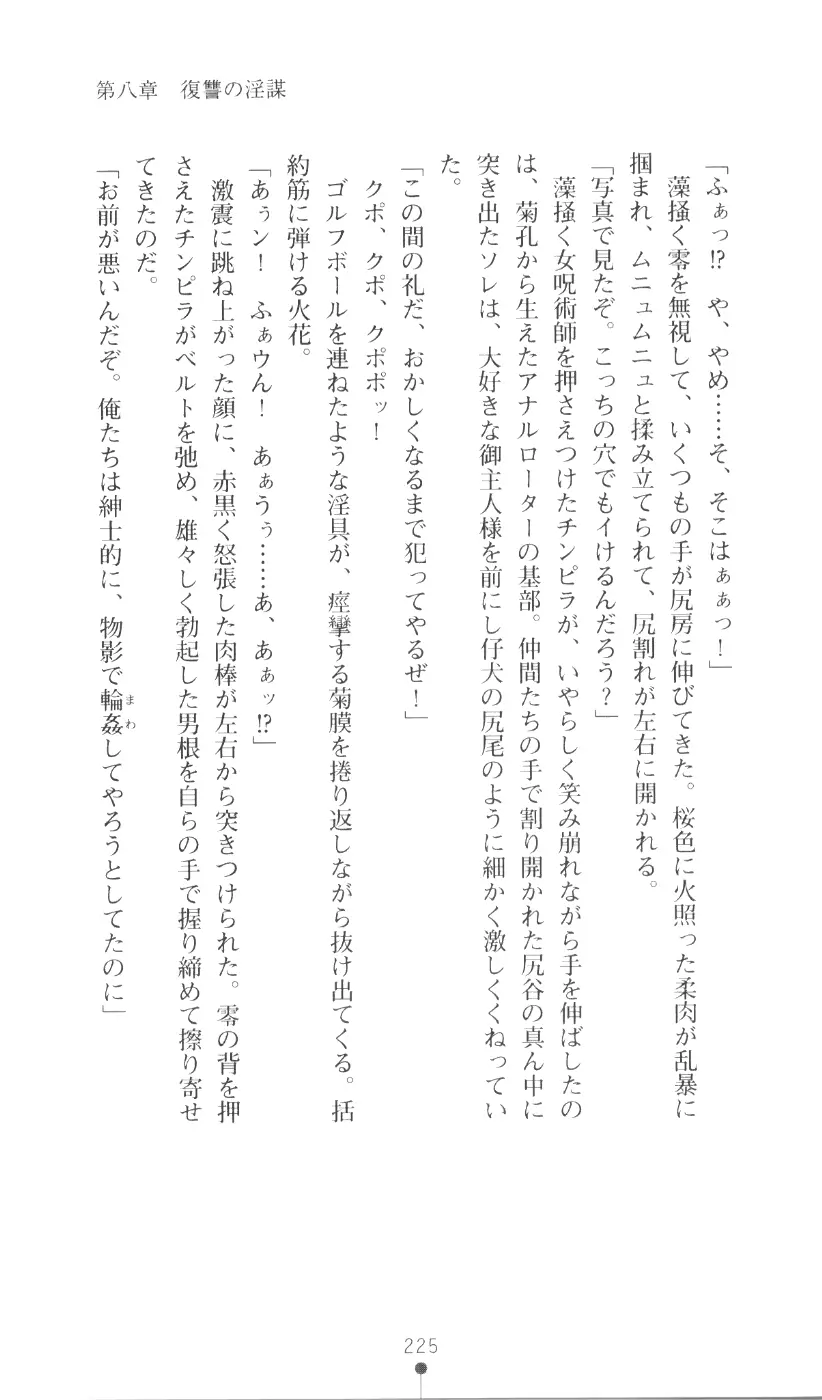 第八章　復讐の淫謀
「ふぁっ!?　や、やめ……そ、そこはぁぁっ！」
　藻掻く零を無視して、いくつもの手が尻房に伸びてきた。桜色に火照った柔肉が乱暴に
掴まれ、ムニュムニュと揉み立てられて、尻割れが左右に開かれる。
「写真で見たぞ。こっちの穴でもイけるんだろう？」
　藻掻く女呪術師を押さえつけたチンピラが、いやらしく笑み崩れながら手を伸ばしたの
は、菊孔から生えたアナルローターの基部。仲間たちの手で割り開かれた尻谷の真ん中に
突き出たソレは、大好きな御主人様を前にし仔犬の尻尾のように細かく激しくくねってい
た。
「この間の礼だ、おかしくなるまで犯ってやるぜ！」
　クポ、クポ、クポポッ！
　ゴルフボールを連ねたような淫具が、痙攣する菊膜を捲り返しながら抜け出てくる。括
約筋に弾ける火花。
「あぅン！　ふぁウん！　あぁうぅ……あ、あぁッ!?」
　激震に跳ね上がった顔に、赤黒く怒張した肉棒が左右から突きつけられた。零の背を押
さえたチンピラがベルトを弛め、雄々しく勃起した男根を自らの手で握り締めて擦り寄せ
てきたのだ。
「お前が悪いんだぞ。俺たちは紳士的に、物影で輪姦まわしてやろうとしてたのに」
225